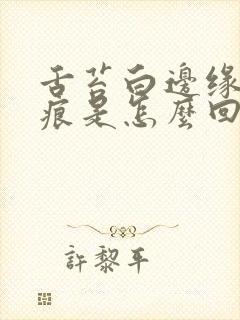 舌苔白邊緣
痕是怎麼回
許黎平